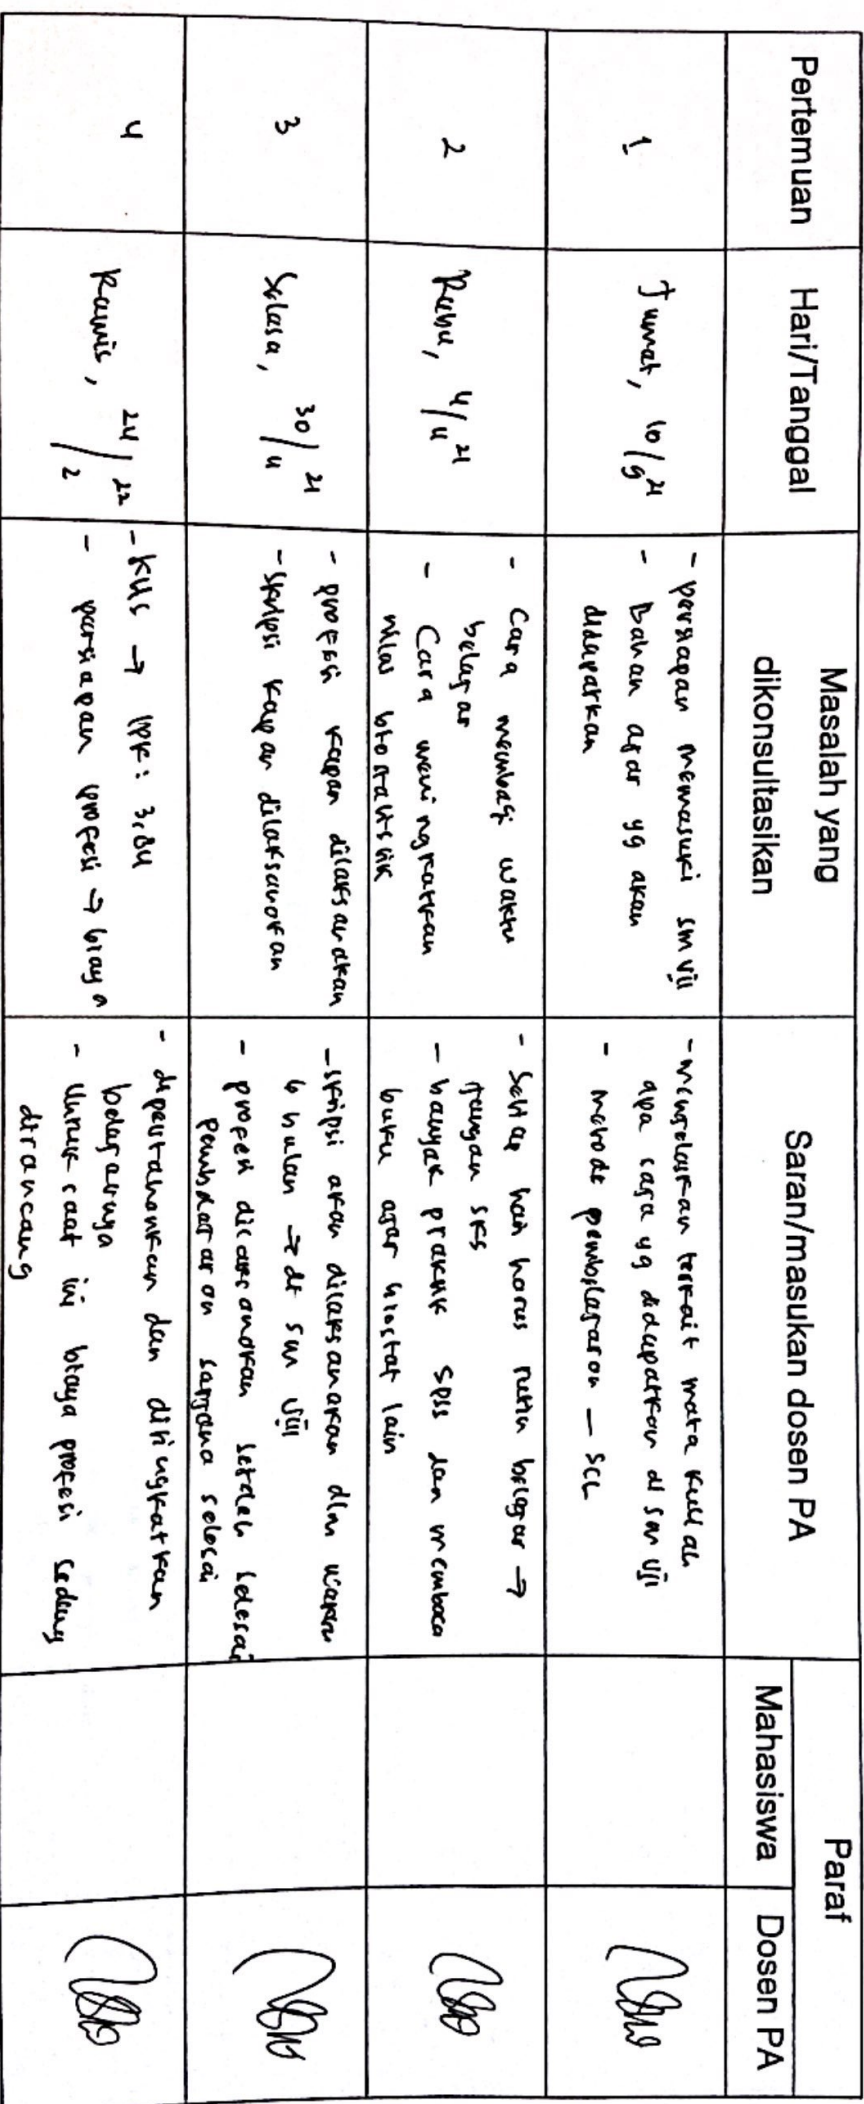 Pertemuan
Hari/Tanggal
Masalah yang
dikonsultasikan
Saran/masukan dosen PA
Paraf
Mahasiswa
Dosen PA
1
Jumat, 10/9 21
- persiapan memasuki sm VII
- Bahan ajar yg akan
didapatkan
- menjelaskan terkait mata kuliah
apa saja yg didapatkan di sm VII
- metode pembelajaran - SCL
2
Rabu, 4/11 21
- Cara membagi waktu
belajar
- Cara meningkatkan
nilai biostatistik
- Setiap hari harus rutin belajar →
jangan sks
- banyak praktik spss dan membaca
buku ajar biostat lain
3
Selasa, 30/11 21
- profesi kapan dilaksanakan
- skripsi kapan dilaksanakan
- skripsi akan dilaksanakan dlm waktu
6 bulan → di sm VIII
- profesi dilaksanakan setelah selesai
pembelajaran sarjana selesai
4
Kamis, 24/2 22
- KHS → IPK: 3,84
- persiapan profesi → biaya
- dipertahankan dan ditingkatkan
belajarnya
- Untuk saat ini biaya profesi sedang
dirancang